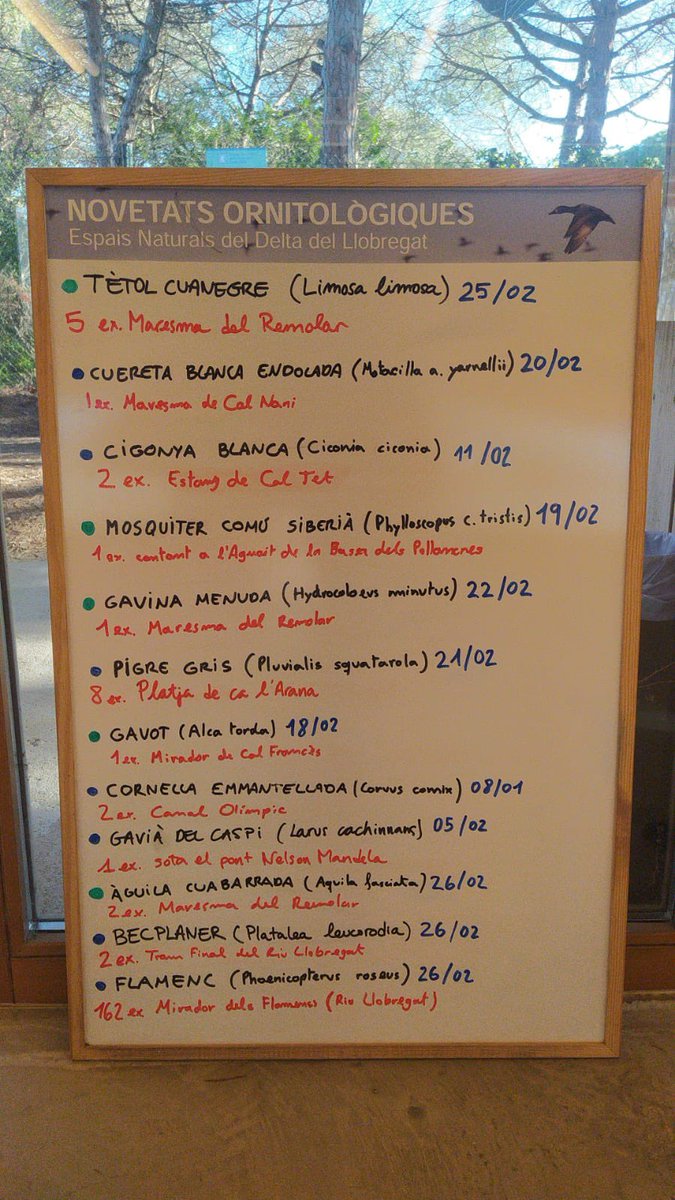 NOVETATS ORNITOLÒGIQUES
Espais Naturals del Delta del Llobregat
TÈTOL CUANEGRE (Limosa limosa) 25/02
5 ex. Maresma del Remolar
CUERETA BLANCA ENDOLADA (Motacilla a. yarrellii) 20/02
1 ex. Maresma de Cal Nani
CIGONYA BLANCA (Ciconia ciconia) 11/02
2 ex. Estany de Cal Tet
MOSQUITER COMÚ SIBERIÀ (Phylloscopus c. tristis) 19/02
1 ex. cantant a l'Aguait de la Bassa dels Pollancres
GAVINA MENUDA (Hydrocoloeus minutus) 22/02
1 ex. Maresma del Remolar
PIGRE GRIS (Pluvialis squatarola) 21/02
8 ex. Platja de ca l'Arana
GAVOT (Alca torda) 18/02
1 ex. Mirador de Cal Francès
CORNELLA EMMANTELLADA (Corvus cornix) 08/01
2 ex. Canal Olímpic
GAVIÀ DEL CASPI (Larus cachinnans) 05/02
1 ex. sota el pont Nelson Mandela
ÀGUILA CUABARRADA (Aquila fasciata) 26/02
2 ex. Maresma del Remolar
BECPLANER (Platalea leucorodia) 26/02
2 ex. Tram Final del Riu Llobregat
FLAMENC (Phoenicopterus roseus) 26/02
162 ex Mirador dels Flamencs (Riu Llobregat)